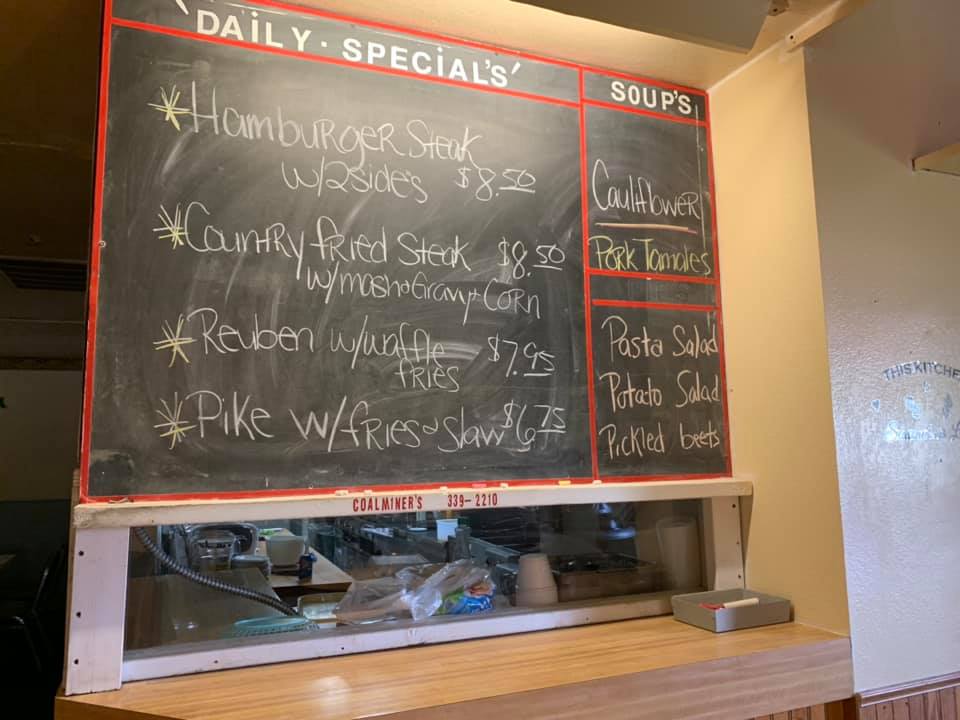 DAILY · SPECIAL'S
* Hamburger Steak
w/2 side's $8.50
* Country fried Steak $8.50
w/mash & Gravy + Corn
* Reuben w/waffle $7.95
fries
* Pike w/fries & slaw $6.75
SOUP'S
Cauliflower
Pork Tamales
Pasta Salad
Potato Salad
Pickled beets
COALMINER'S 339-2210
THIS KITCHE